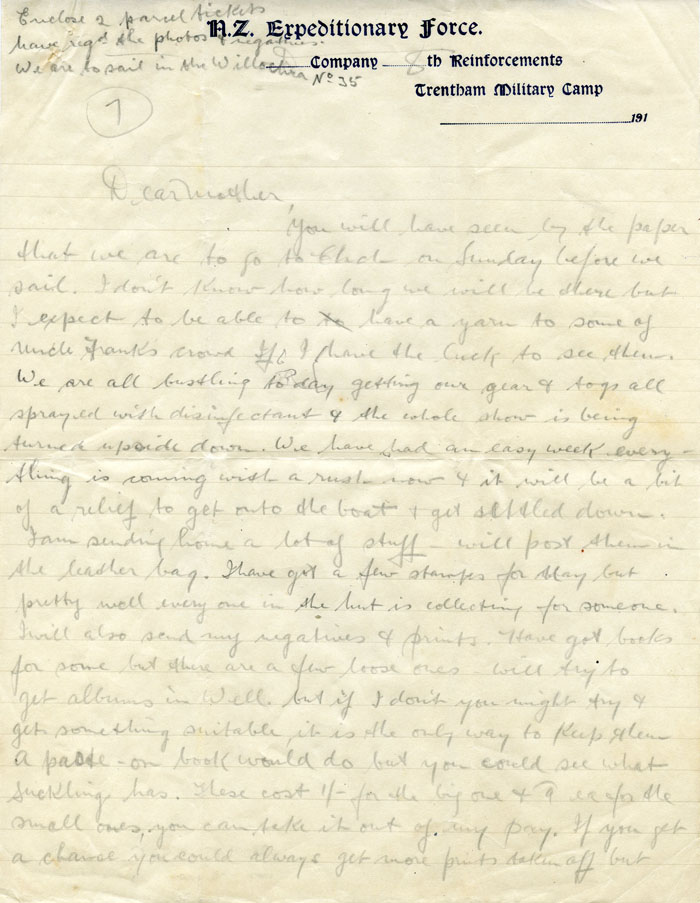 Enclose 2 parcel tickets
have regd the photos & negatives.
We are to sail in the Willochra No 35
N.Z. Expeditionary Force.
Company 8th Reinforcements
Trentham Military Camp
191
1
Dear Mother,
You will have seen by the paper
that we are to go to Chch on Sunday before we
sail. I don't know how long we will be there but
I expect to be able to to have a yarn to some of
Uncle Franks crowd If I have the luck to see them.
We are all bustling today getting our gear & togs all
sprayed with disinfectant & the whole show is being
turned upside down. We have had an easy week every-
thing is coming with a rush now & it will be a bit
of a relief to get onto the boat & get settled down.
I am sending home a lot of stuff - will post them in
the leather bag. I have got a few stamps for May but
pretty well every one in the hut is collecting for someone.
I will also send my negatives & prints. Have got books
for some but there are a few loose ones - will try to
get albums in Well. but if I don't you might try &
get something suitable it is the only way to keep them
a paste-on book would do but you could see what
Suckling has. These cost 1/- for the big one & 9 ea for the
small ones, you can take it out of my pay. If you get
a chance you could always get more prints taken off but